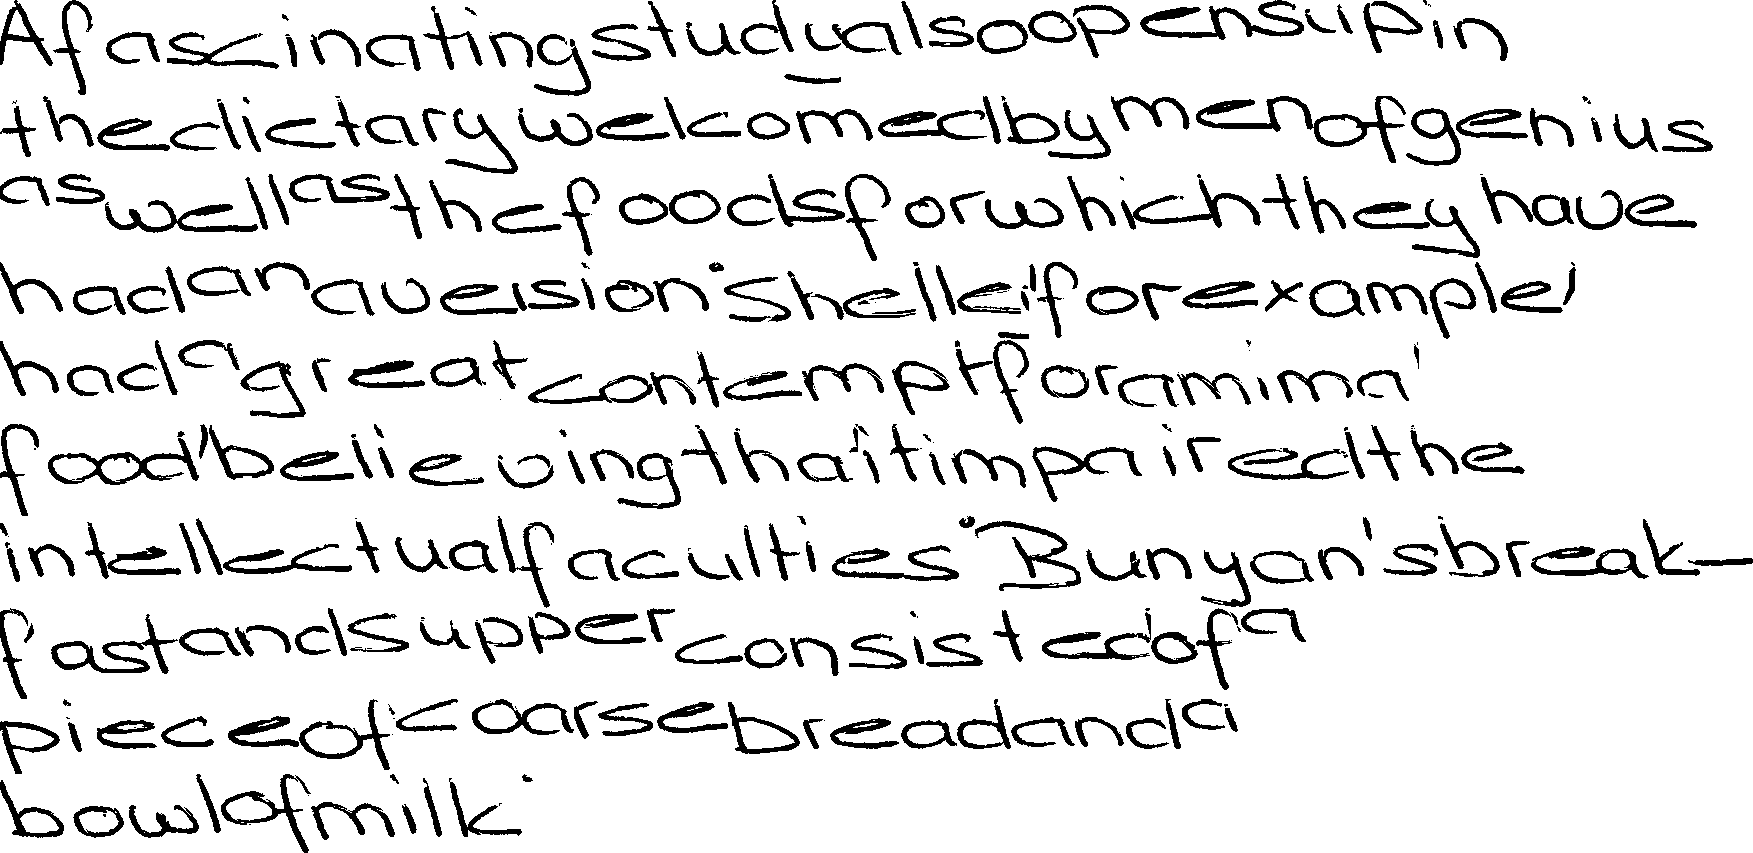 A fascinating study also opens up in
the dietary welcomed by men of genius
as well as the foods for which they have
had an aversion. Shelley, for example,
had a great contempt for animal
food, believing that it impaired the
intellectual faculties. Bunyan's break-
fast and supper consisted of a
piece of coarse bread and a
bowl of milk.